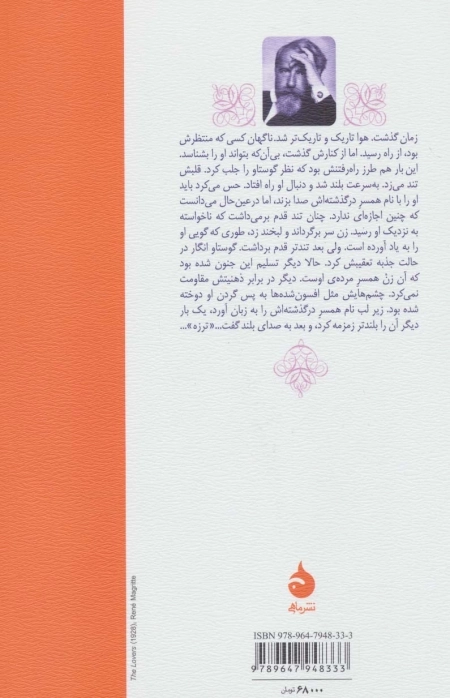 زمان گذشت. هوا تاریک و تاریک‌تر شد. ناگهان کسی که منتظرش
بود، از راه رسید. اما از کنارش گذشت، بی‌آن‌که بتواند او را بشناسد.
این بار هم طرز راه‌رفتنش بود که نظر گوستاو را جلب کرد. قلبش
تند می‌زد. به‌سرعت بلند شد و دنبال او راه افتاد. حس می‌کرد باید
او را با نام همسر درگذشته‌اش صدا بزند، اما درعین‌حال می‌دانست
که چنین اجازه‌ای ندارد. چنان تند قدم برمی‌داشت که ناخواسته
به نزدیک او رسید. زن سر برگرداند و لبخند زد، طوری که گویی او
را به یاد آورده است. ولی بعد تندتر قدم برداشت. گوستاو انگار در
حالت جذبه تعقیبش کرد. حالا دیگر تسلیم این جنون شده بود
که آن زنْ همسرِ مرده‌ی اوست. دیگر در برابر ذهنیتش مقاومت
نمی‌کرد. چشم‌هایش مثل افسون‌شده‌ها به پس گردن او دوخته
شده بود. زیر لب نام همسر درگذشته‌اش را به زبان آورد، یک بار
دیگر آن را بلندتر زمزمه کرد، و بعد به صدای بلند گفت...«ترزه»...
The Lovers (1928), René Magritte
نشرماهی
ISBN 978-964-7948-33-3
9 789647 948333
۶۸۰۰۰ تومان